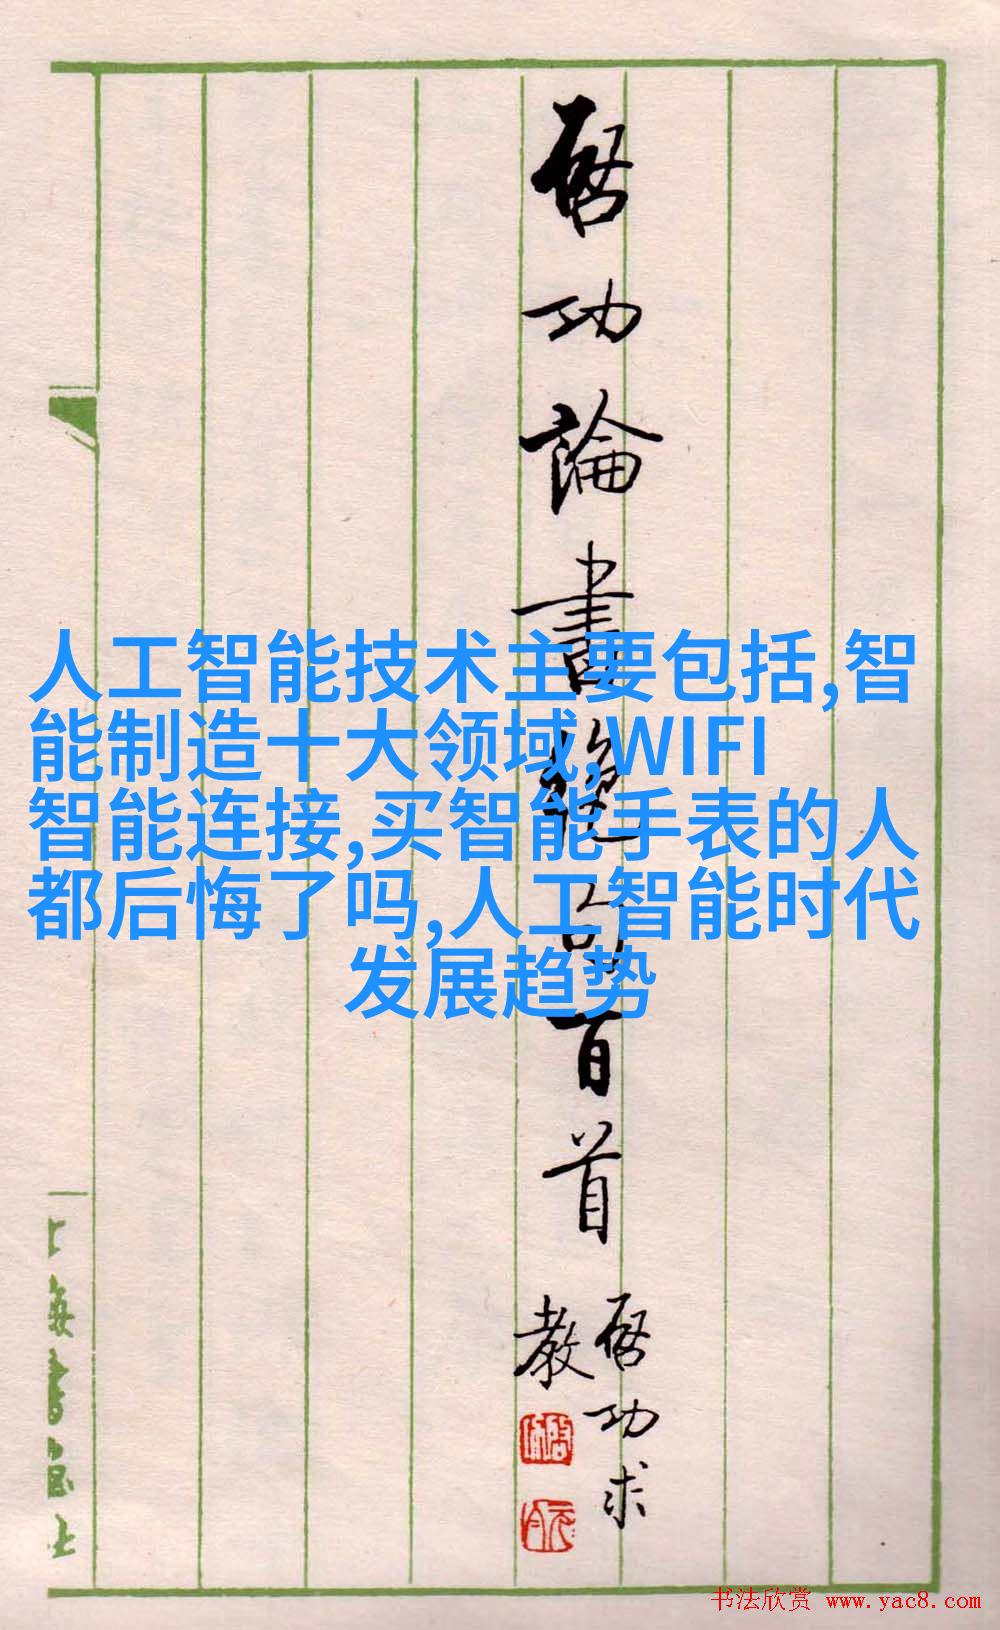 启功論書絶句百首
启功求
教
人工智能技术主要包括,智
能制造十大领域,WIFI
智能连接,买智能手表的人
都后悔了吗,人工智能时代
发展趋势
上海書画社
书法欣赏 www.yac8.com